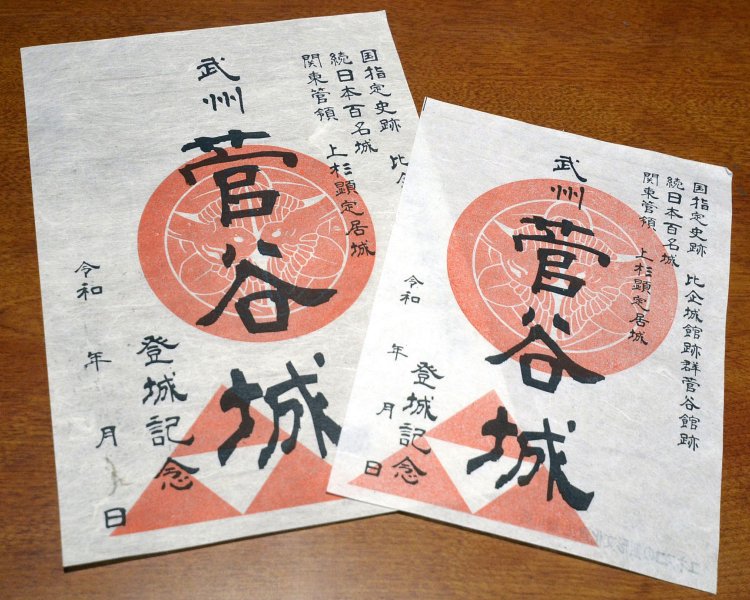 国指定史跡 比企
続日本百名城
関東管領 上杉顕定居城
武州
菅谷城
登城記念
令和 年 月 日
国指定史跡 比企城館跡群菅谷館跡
続日本百名城
関東管領 上杉顕定居城
武州
菅谷城
登城記念
令和 年 月 日